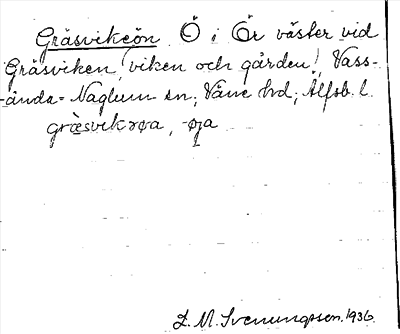 Gräsviksön Ö i Ör väster vid
Gräsviken (viken och gården), Väss-
ända-Naglum sn, Väne hd, Älfsb. l.
græsvikrøa, -øja
L. M. Svenungsson. 1936.